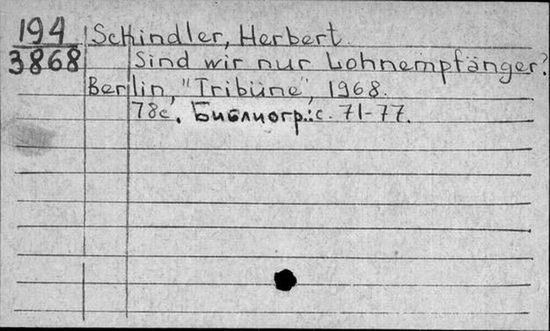 194 Schindler, Herbert
3868 Sind wir nur Lohnempfänger?
Berlin, "Tribüne", 1968.
78c. Библиогр.: с. 71-77.